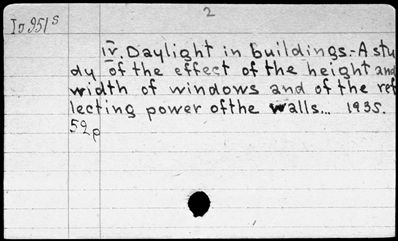 2
Io951s
iv. Daylight in buildings.-A stu
dy of the effect of the height and
width of windows and of the ref
lecting power ofthe walls... 1935.
52p